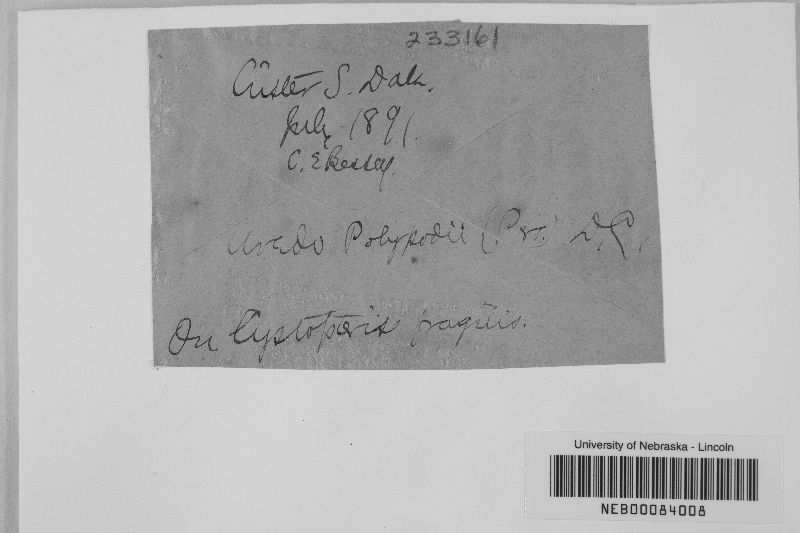 233161
Custer S. Dak.
July 1891.
C. E. Bessey.
Uredo Polypodii (Pers.) D.C.
On Cystopteris fragilis.
University of Nebraska - Lincoln
NEB00084008